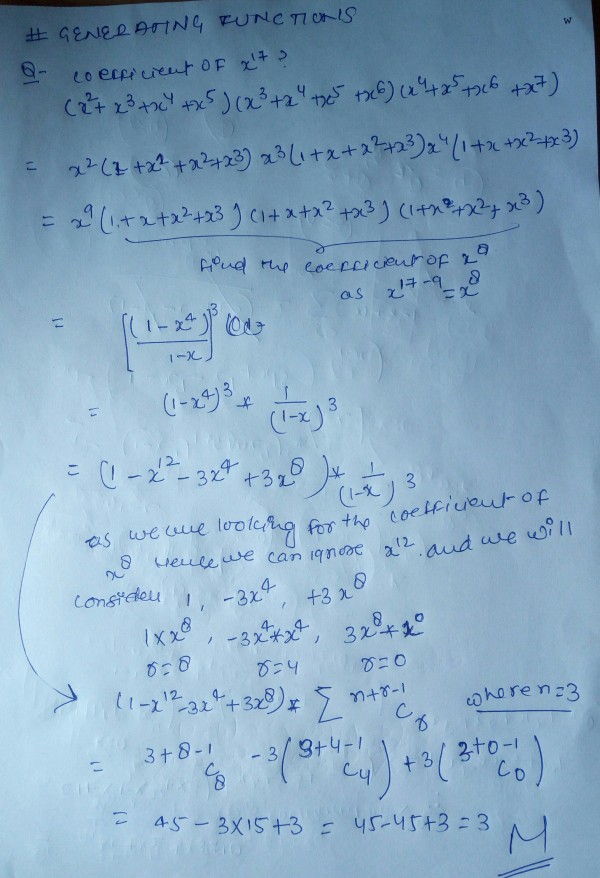 # GENERATING FUNCTIONS
w
Q- coefficient OF x^17 ?
(x^2 + x^3 + x^4 + x^5) (x^3 + x^4 + x^5 + x^6) (x^4 + x^5 + x^6 + x^7)
= x^2 (1 + x + x^2 + x^3) x^3 (1 + x + x^2 + x^3) x^4 (1 + x + x^2 + x^3)
= x^9 (1 + x + x^2 + x^3) (1 + x + x^2 + x^3) (1 + x + x^2 + x^3)
find the coefficient of x^8
as x^17-9 = x^8
= [(1 - x^4) / 1 - x]^3
= (1 - x^4)^3 * 1/(1-x)^3
= (1 - x^12 - 3x^4 + 3x^8) * 1/(1-x)^3
as we are looking for the coefficient of
x^8 Hence we can ignore x^12. and we will
consider 1, -3x^4, +3x^8
1 × x^8, -3x^4 * x^4, 3x^8 * x^0
r = 8 r = 4 r = 0
(1 - x^12 - 3x^4 + 3x^8) * Σ n+r-1 C r where n = 3
= 3+8-1 C 8 - 3 (3+4-1 C 4) + 3 (3+0-1 C 0)
= 45 - 3×15 + 3 = 45 - 45 + 3 = 3
M